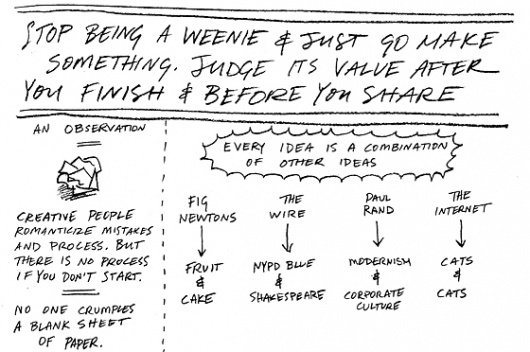 STOP BEING A WEENIE & JUST GO MAKE
SOMETHING. JUDGE ITS VALUE AFTER
YOU FINISH & BEFORE YOU SHARE
AN OBSERVATION
CREATIVE PEOPLE
ROMANTICIZE MISTAKES
AND PROCESS. BUT
THERE IS NO PROCESS
IF YOU DON'T START.
NO ONE CRUMPLES
A BLANK SHEET
OF PAPER.
EVERY IDEA IS A COMBINATION
OF OTHER IDEAS
FIG
NEWTONS
FRUIT
&
CAKE
THE
WIRE
NYPD BLUE
&
SHAKESPEARE
PAUL
RAND
MODERNISM
&
CORPORATE
CULTURE
THE
INTERNET
CATS
&
CATS